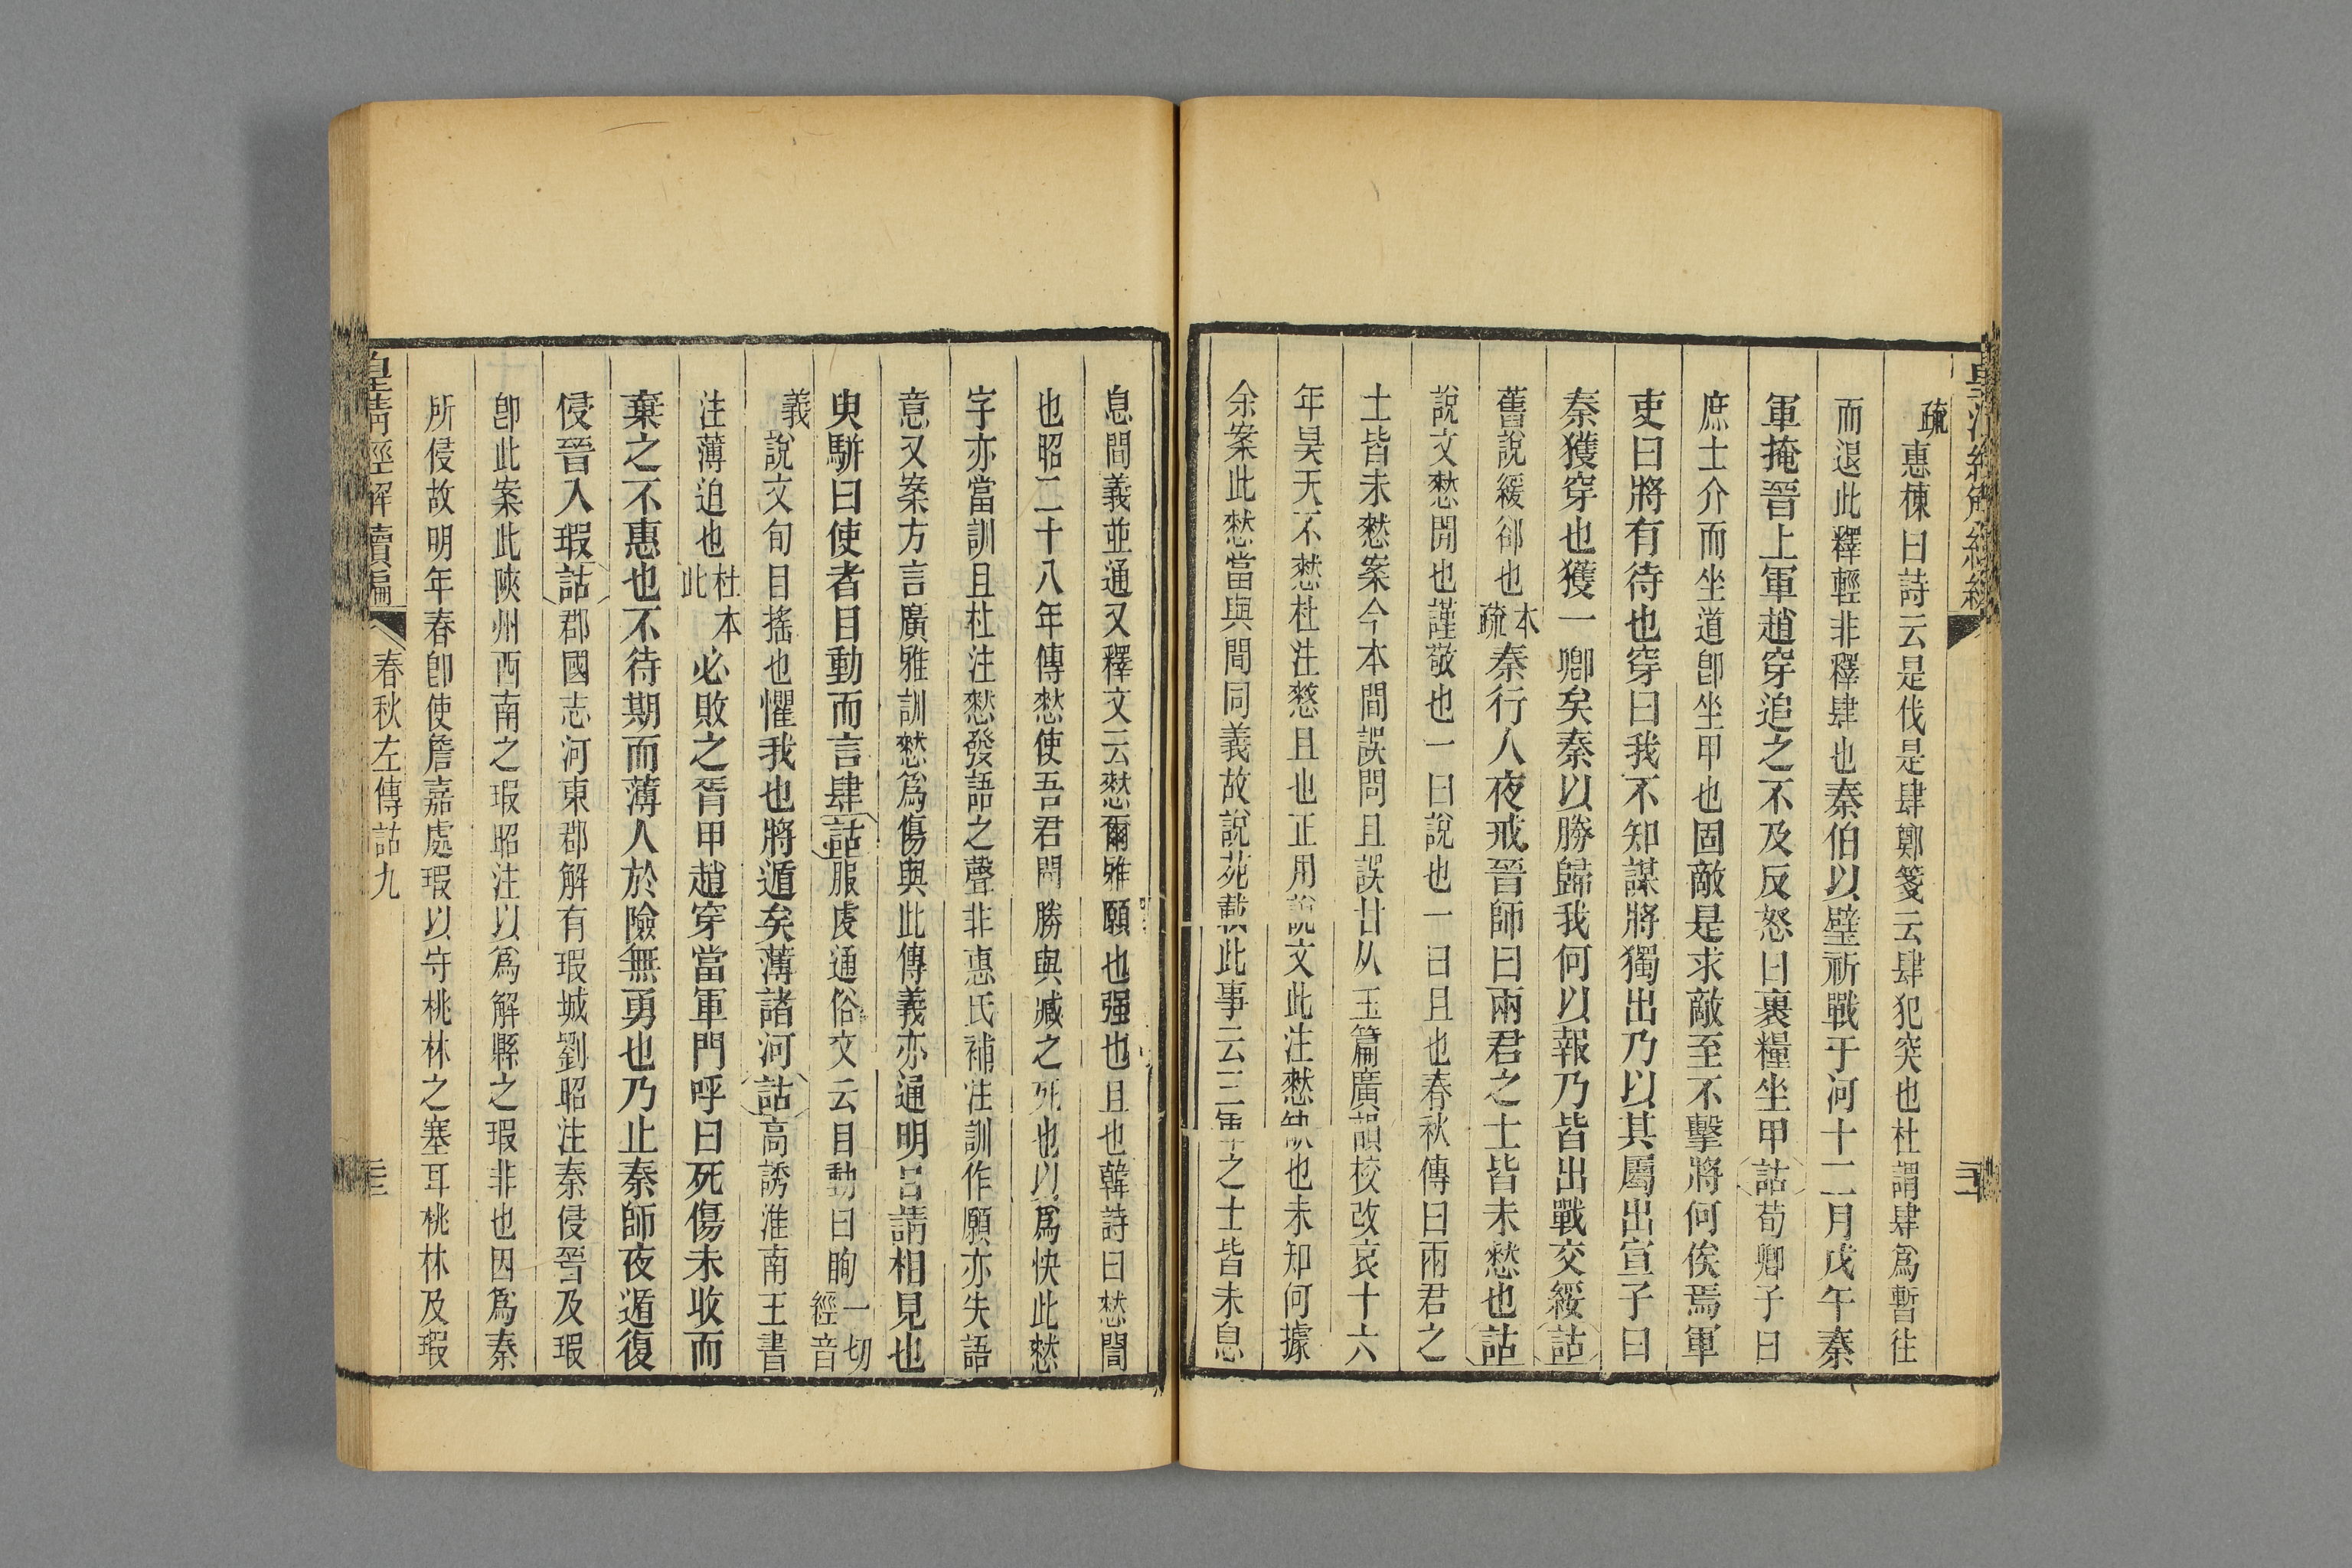 疏惠棟曰詩云是伐是肆鄭箋云肆犯突也杜謂肆爲暫往
而退此釋輕非釋肆也秦伯以璧祈戰于河十二月戊午秦
軍掩晉上軍趙穿追之不及反怒曰裹糧坐甲詁荀卿子曰
庶士介而坐道卽坐甲也固敵是求敵至不擊將何俟焉軍
吏曰將有待也穿曰我不知謀將獨出乃以其屬出宣子曰
秦獲穿也獲一卿矣秦以勝歸我何以報乃皆出戰交綏詁
舊說緩卻也本疏秦行人夜戒晉師曰兩君之士皆未憖也詁
說文憖閒也謹敬也一曰說也一曰且也春秋傳曰兩君之
士皆未憖案今本間誤問且誤甘从玉篇廣韻校改哀十六
年昊天不憖杜注憖且也正用說文此注憖缺也未知何據
余案此憖當與間同義故說苑載此事云三軍之士皆未息
息間義並通又釋文云憖爾雅願也强也且也韓詩曰憖閒
也昭二十八年傳憖使吾君聞勝與臧之死也以爲快此憖
字亦當訓且杜注憖發語之聲非惠氏補注訓作願亦失語
意又案方言廣雅訓憖爲傷與此傳義亦通明日請相見也
臾駢曰使者目動而言肆詁服虔通俗文云目動曰眴一切經音
義說文旬目搖也懼我也將遁矣薄諸河詁高誘淮南王書
注薄迫也杜本此必敗之胥甲趙穿當軍門呼曰死傷未收而
棄之不惠也不待期而薄人於險無勇也乃止秦師夜遁復
侵晉入瑕詁郡國志河東郡解有瑕城劉昭注秦侵晉及瑕
卽此案此陝州西南之瑕昭注以爲解縣之瑕非也因爲秦
所侵故明年春卽使詹嘉處瑕以守桃林之塞耳桃林及瑕
皇淸經解續編
春秋左傳詁九